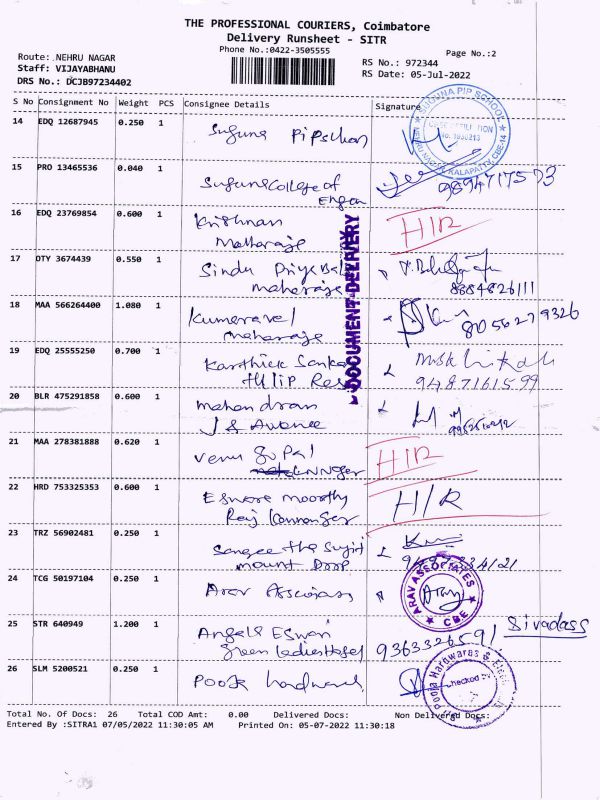 THE PROFESSIONAL COURIERS, Coimbatore
Delivery Runsheet - SITR
Phone No.:0422-3505555
Page No.:2
Route: NEHRU NAGAR
Staff: VIJAYABHANU
DRS No.: DCJB97234402
RS No.: 972344
RS Date: 05-Jul-2022
S No Consignment No Weight PCS Consignee Details Signature
14 EDQ 12687945 0.250 1 Suguna Pip School
15 PRO 13465536 0.040 1 Suguna College of
Engan 9894717573
16 EDQ 23769854 0.600 1 Krishnan H/R
Maharaje
17 OTY 3674439 0.550 1 Sindu Priya
maharaje 8884826111
18 MAA 566264400 1.080 1 Kumaravel 8056279326
maharaje
19 EDQ 25555250 0.700 1 Karthick Sanka
tulip Res 9487161599
20 BLR 475291858 0.600 1 mahendran
J S Avenue
21 MAA 278381888 0.620 1 Venu Gopal H/R
22 HRD 753325353 0.600 1 Eswara moorthy H/R
Raj
23 TRZ 56902481 0.250 1 Sangeetha Sujit
mount Drop
24 TCG 50197104 0.250 1 Arav Associates
25 STR 640949 1.200 1 Angels Eswari Sivadass
Green ladies Hostel 9363326591
26 SLM 5200521 0.250 1 Pooja hardwares
DOCUMENT DELIVERY
SUGUNA PIP SCHOOL
NEHRU NAGAR, KALAPATTI, CBE-14
CBSE AFFILIATION
No. 1930213
ARAV ASSOCIATES
CBE
Sri Pooja Hardwares & Elec
Checked By
Total No. Of Docs: 26 Total COD Amt: 0.00 Delivered Docs: Non Delivered Docs:
Entered By :SITRA1 07/05/2022 11:30:05 AM Printed On: 05-07-2022 11:30:18